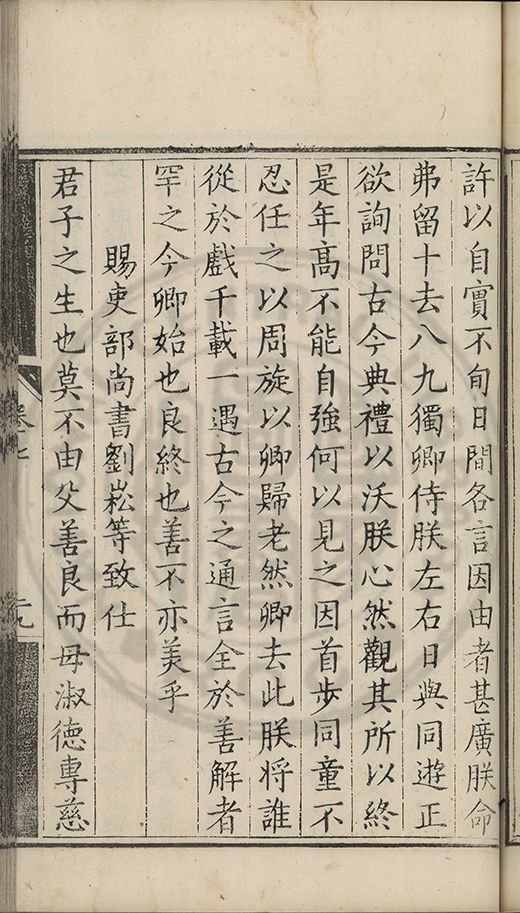 許以自實不旬日間各言因由者甚廣朕命
弗留十去八九獨卿侍朕左右日與同遊正
欲詢問古今典禮以沃朕心然觀其所以終
是年髙不能自強何以見之因首步同童不
忍任之以周旋以卿歸老然卿去此朕将誰
從於戲千載一遇古今之通言全於善解者
罕之今卿始也良終也善不亦美乎
賜吏部尚書劉崧等致仕
君子之生也莫不由父善良而母淑徳專慈
卷七